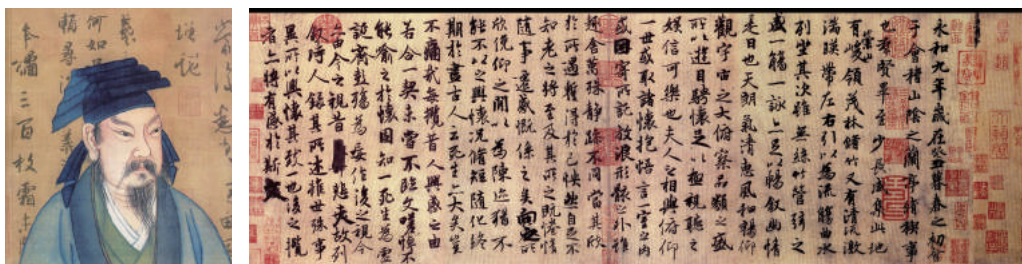 何如
奉橘三百枚霜未
永和九年歲在癸丑暮春之初會
于會稽山陰之蘭亭脩稧事
也羣賢畢至少長咸集此地
有崇山峻領茂林脩竹又有清流激
湍暎帶左右引以為流觴曲水
列坐其次雖無絲竹管弦之
盛一觴一詠亦足以暢敘幽情
是日也天朗氣清惠風和暢仰
觀宇宙之大俯察品類之盛
所以遊目騁懷足以極視聽之
娛信可樂也夫人之相與俯仰
一世或取諸懷抱悟言一室之內
或因寄所託放浪形骸之外雖
趣舍萬殊靜躁不同當其欣
於所遇暫得於己怏然自足不
知老之將至及其所之既惓情
隨事遷感慨係之矣向之所
欣俛仰之間以為陳迹猶不
能不以之興懷況脩短隨化終
期於盡古人云死生亦大矣豈
不痛哉每攬昔人興感之由
若合一契未嘗不臨文嗟悼不
能喻之於懷固知一死生為虛
誕齊彭殤為妄作後之視今
亦由今之視昔悲夫故列
敘時人錄其所述雖世殊事
異所以興懷其致一也後之攬
者亦將有感於斯文